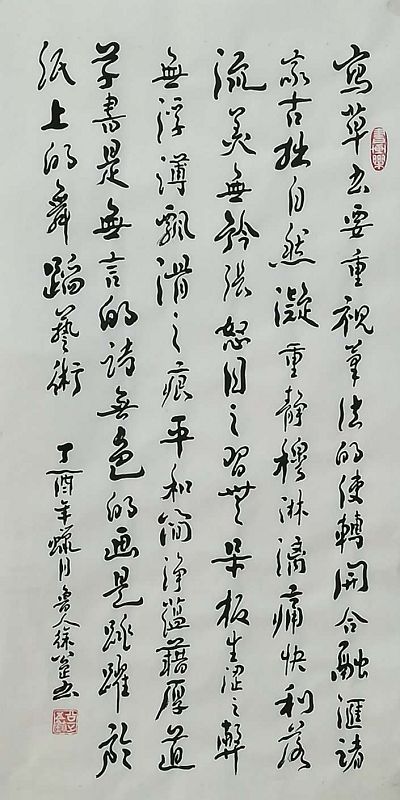 寫草书要重視筆法的使轉開合融滙諸
家古拙自然凝重静穆淋漓痛快利落
流美無矜張怒目之習無呆板生涩之弊
無浮薄飘滑之痕平和简净蕴藉厚道
草書是無言的詩無色的画是跳躍於
纸上的舞蹈藝術
丁酉年臘月魯人徐